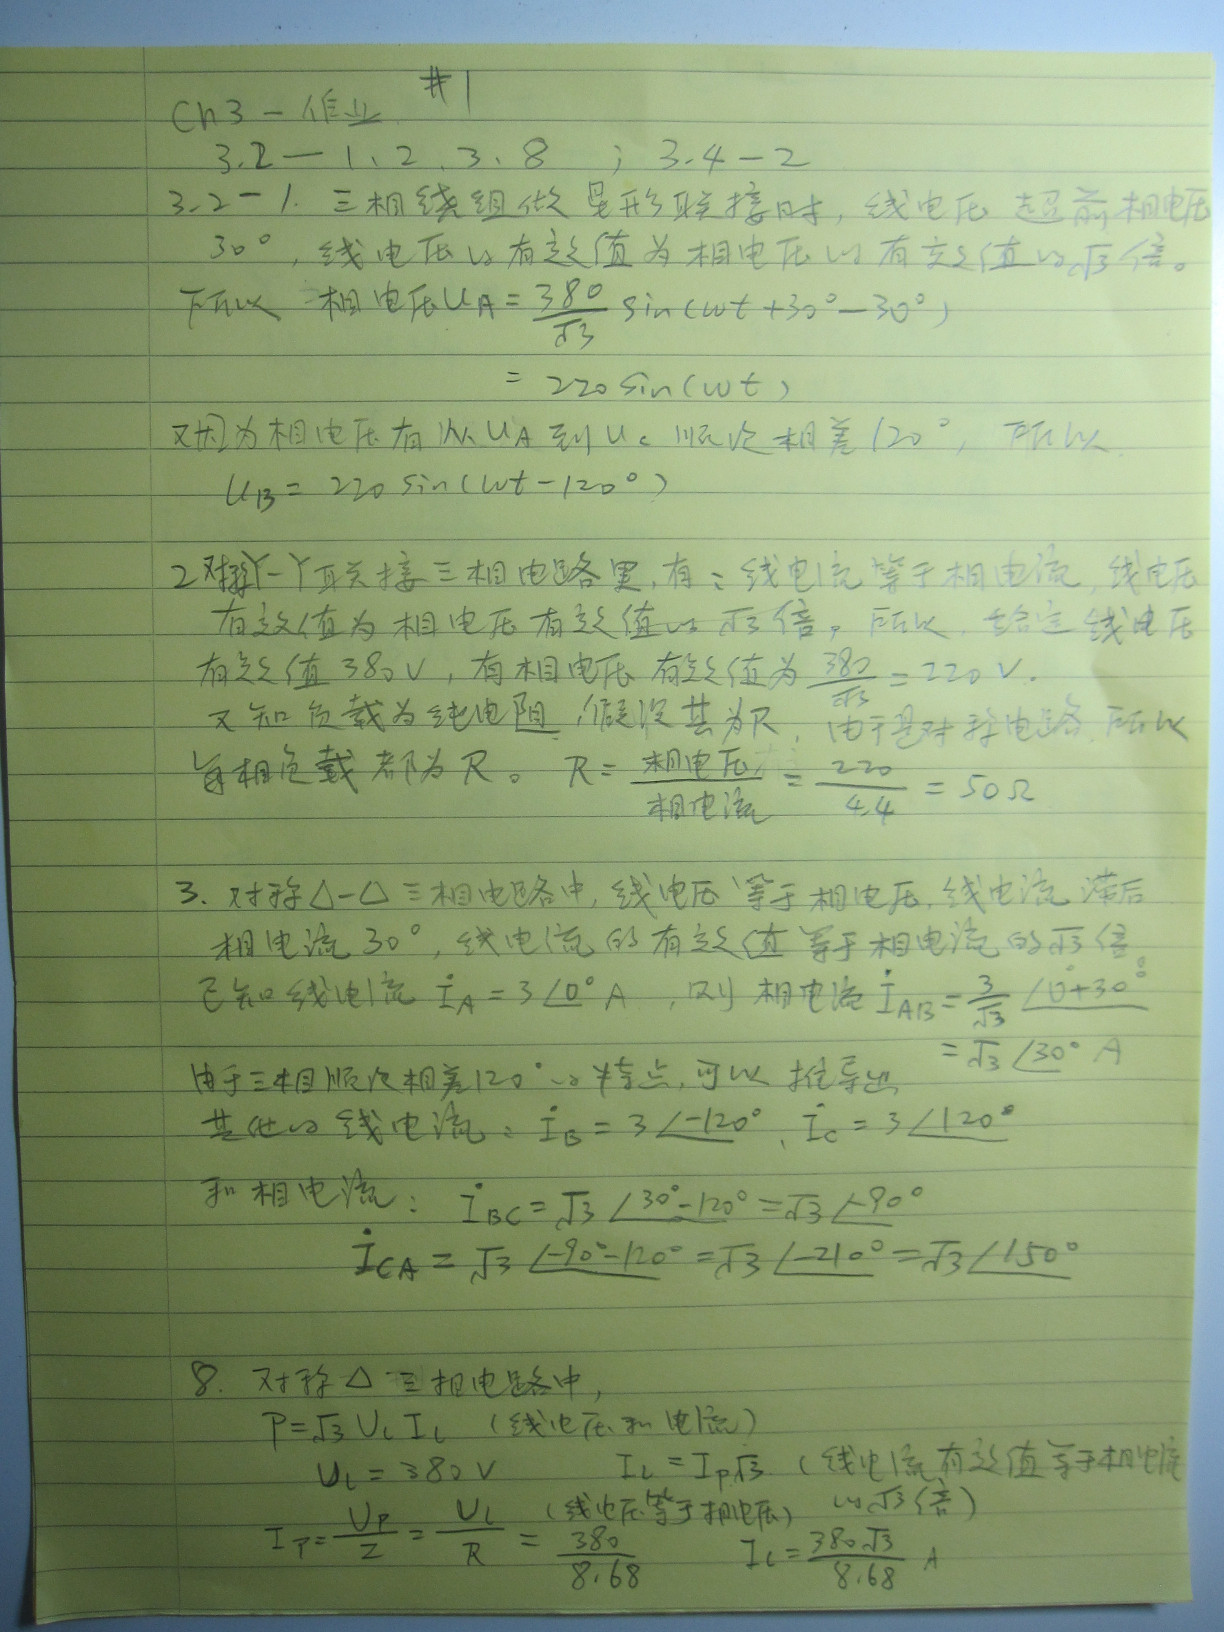 #1
Ch3 - 作业
3.2 — 1、2、3、8 ; 3.4 - 2
3.2-1. 三相绕组做星形联接时, 线电压超前相电压
30°, 线电压的有效值为相电压的有效值的√3倍。
所以 相电压 u_A = 380/√3 sin(ωt+30°-30°)
= 220 sin(ωt)
又因为相电压有从 u_A 到 u_C 顺次相差120°, 所以
u_B = 220 sin(ωt-120°)
2 对称Y-Y联接三相电路里, 有: 线电流等于相电流, 线电压
有效值为相电压有效值的√3倍。所以, 给定线电压
有效值 380V, 有相电压有效值为 380/√3 = 220V.
又知负载为纯电阻, 假设其为R, 由于是对称电路, 所以
每相负载都为R。 R = 相电压/相电流 = 220/4.4 = 50Ω
3. 对称△-△三相电路中, 线电压等于相电压, 线电流滞后
相电流30°, 线电流的有效值等于相电流的√3倍
已知线电流 İ_A = 3∠0° A, 则相电流 İ_AB = 3/√3 ∠0°+30°
= √3 ∠30° A
由于三相顺次相差120°的特点, 可以推导出
其他的线电流: İ_B = 3∠-120°、İ_C = 3∠120°
和相电流: İ_BC = √3 ∠30°-120° = √3 ∠-90°
İ_CA = √3 ∠-90°-120° = √3 ∠-210° = √3 ∠150°
8. 对称△三相电路中,
P = √3 U_L I_L (线电压和电流)
U_L = 380V I_L = I_P√3 (线电流有效值等于相电流
的√3倍)
I_P = U_P/Z = U_L/R = 380/8.68 (线电压等于相电压) I_L = 380√3/8.68 A